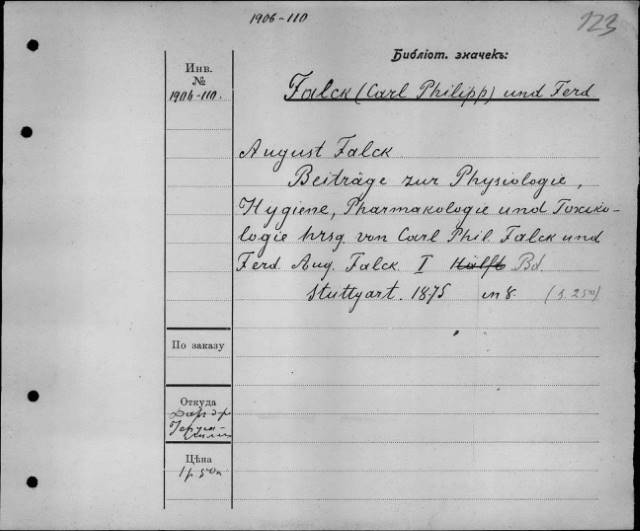 1906-110
123
Библіот. значекъ:
Инв.
№
1906-110.
Falck (Carl Philipp) und Ferd
August Falck
Beiträge zur Physiologie,
Hygiene, Pharmakologie und Toxiko-
logie hrsg. von Carl Phil. Falck und
Ferd. Aug. Falck. I Hälfte Bd.
Stuttgart. 1875 in 8.
По заказу
Откуда
Цѣна
1 р 50 к